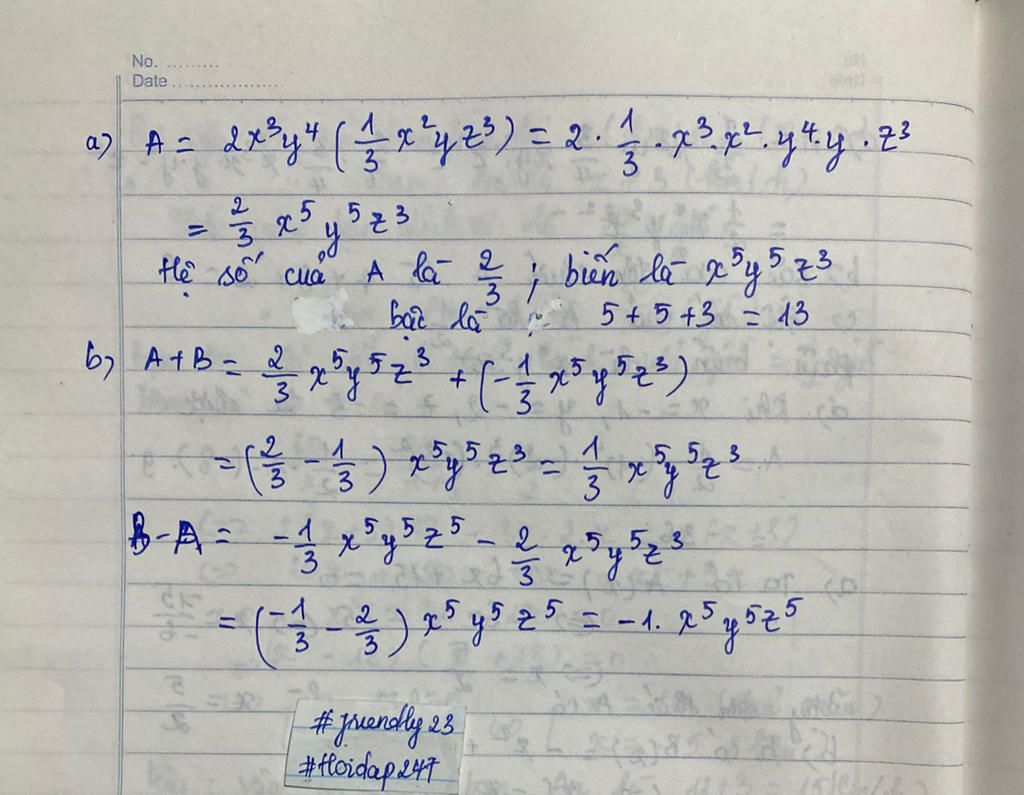 No. .........
Date ...................
a) A = 2x³y⁴ (1/3 x²yz³) = 2 · 1/3 · x³ · x² · y⁴ · y · z³
= 2/3 x⁵ y⁵ z³
Hệ số của A là 2/3 ; biến là x⁵y⁵z³
bậc là : 5 + 5 + 3 = 13
b) A + B = 2/3 x⁵y⁵z³ + (-1/3 x⁵y⁵z³)
= (2/3 - 1/3) x⁵y⁵z³ = 1/3 x⁵y⁵z³
B - A = -1/3 x⁵y⁵z⁵ - 2/3 x⁵y⁵z³
= (-1/3 - 2/3) x⁵y⁵z⁵ = -1. x⁵y⁵z⁵
#friendly23
#Hoidap247